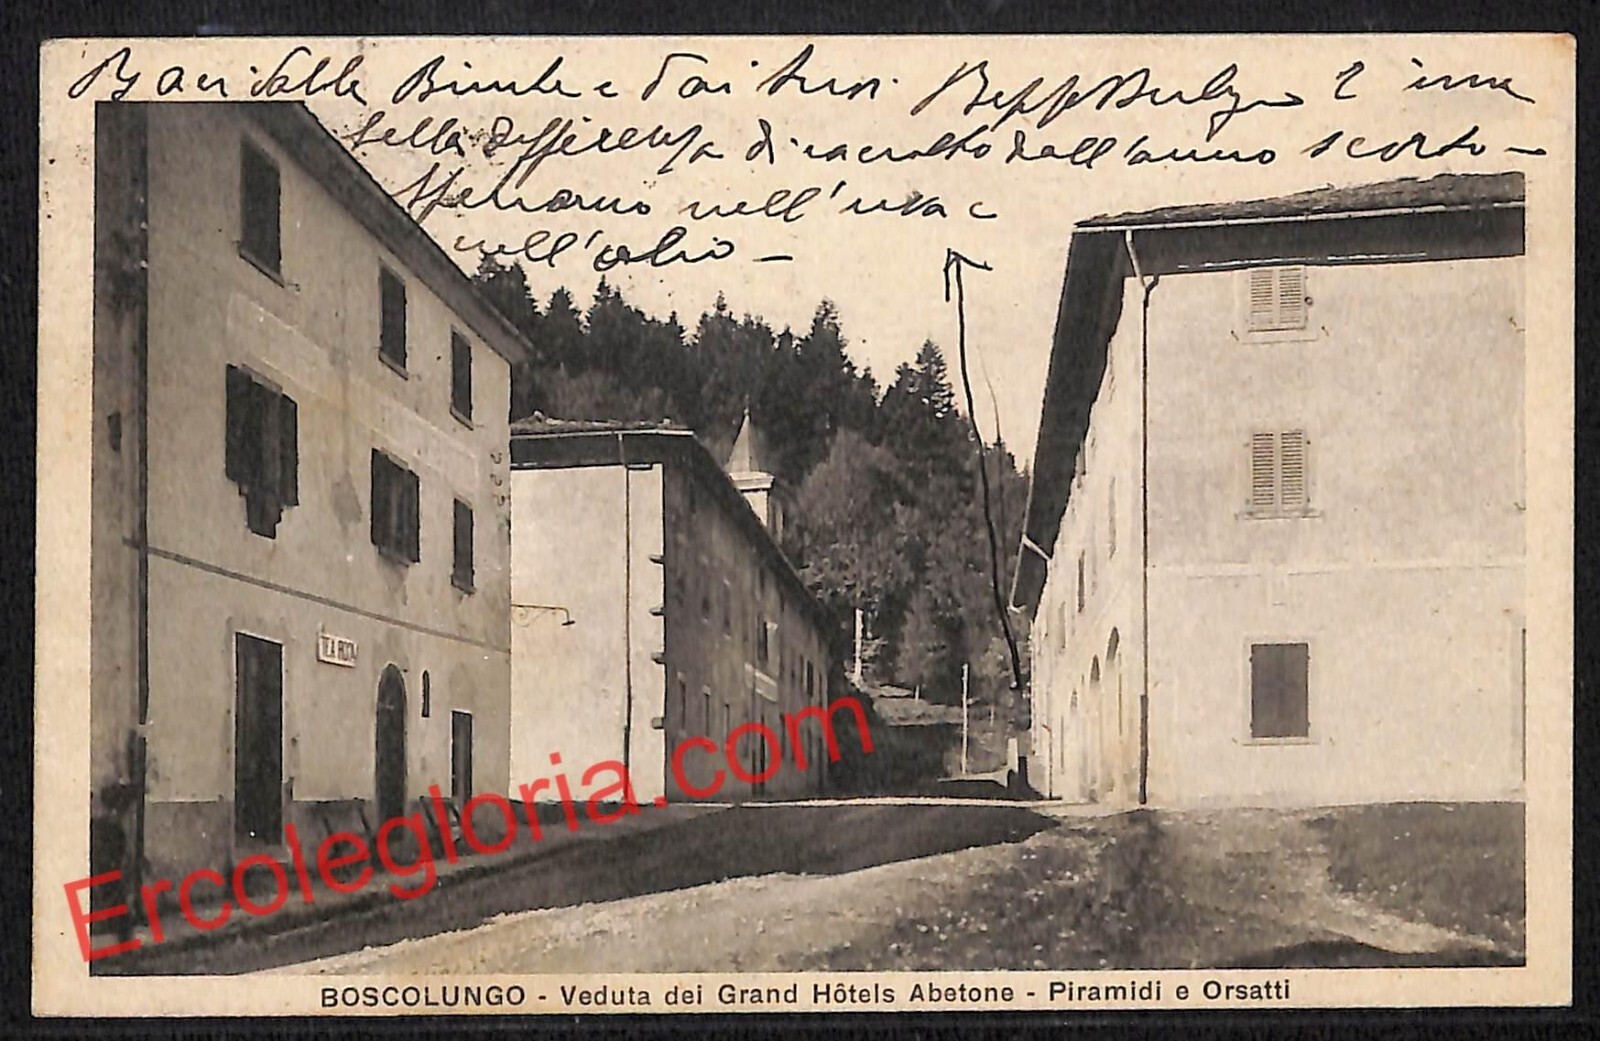 Baci dalle Bimbe e dai tuoi. Beppe è una
bella differenza di raccolto dall'anno scorso -
Speriamo nell'uva e
nell'olio -
TEA ROOM
Ercolegloria.com
BOSCOLUNGO - Veduta dei Grand Hôtels Abetone - Piramidi e Orsatti